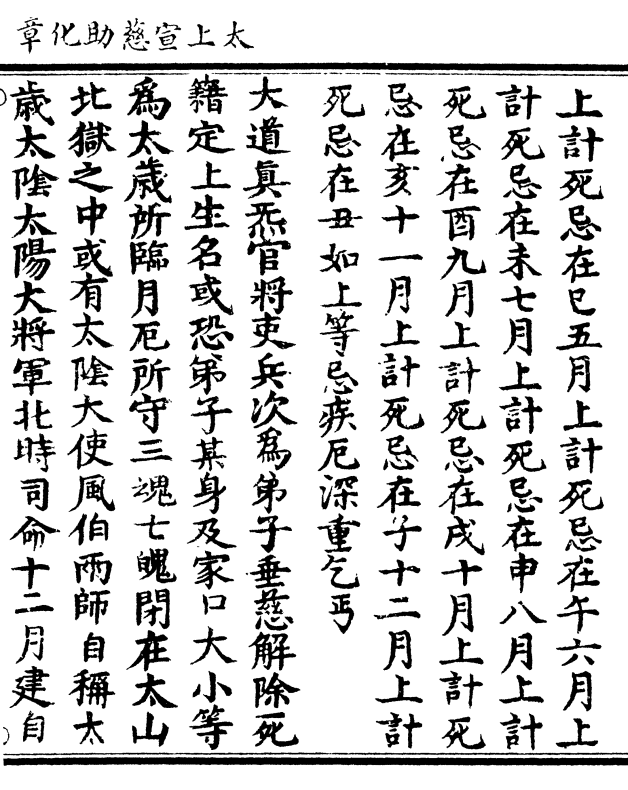 太上宣慈助化章
上計死忌在巳五月上計死忌在午六月上
計死忌在未七月上計死忌在申八月上計
死忌在酉九月上計死忌在戌十月上計死
忌在亥十一月上計死忌在子十二月上計
死忌在丑如上等忌疾厄深重乞丐
大道真炁官將吏兵次為弟子垂慈解除死
籍定上生名或恐弟子某身及家口大小等
為太歲所臨月厄所守三魂七魄閉在太山
北獄之中或有太陰大使風伯雨師自稱太
歲太陰太陽大將軍北時司命十二月建自